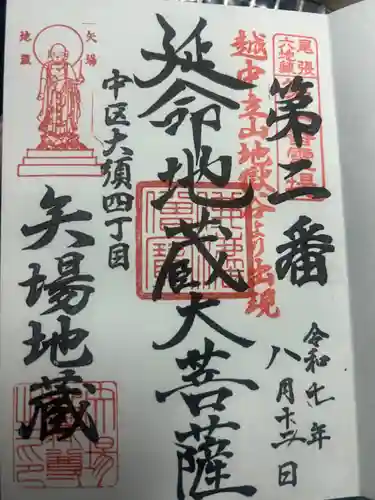 尾張
六地蔵
第二番
霊場
令和七年
八月十三日
越中立山地獄谷より出現
延命地蔵大菩薩
中区大須四丁目
矢場
地蔵
矢場地蔵